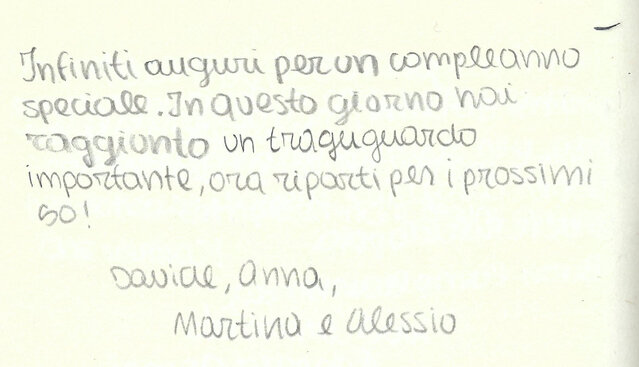 Infiniti auguri per un compleanno
speciale. In questo giorno hai
raggiunto un traguguardo
importante, ora riparti per i prossimi
50!
Davide, Anna,
Martina e Alessio